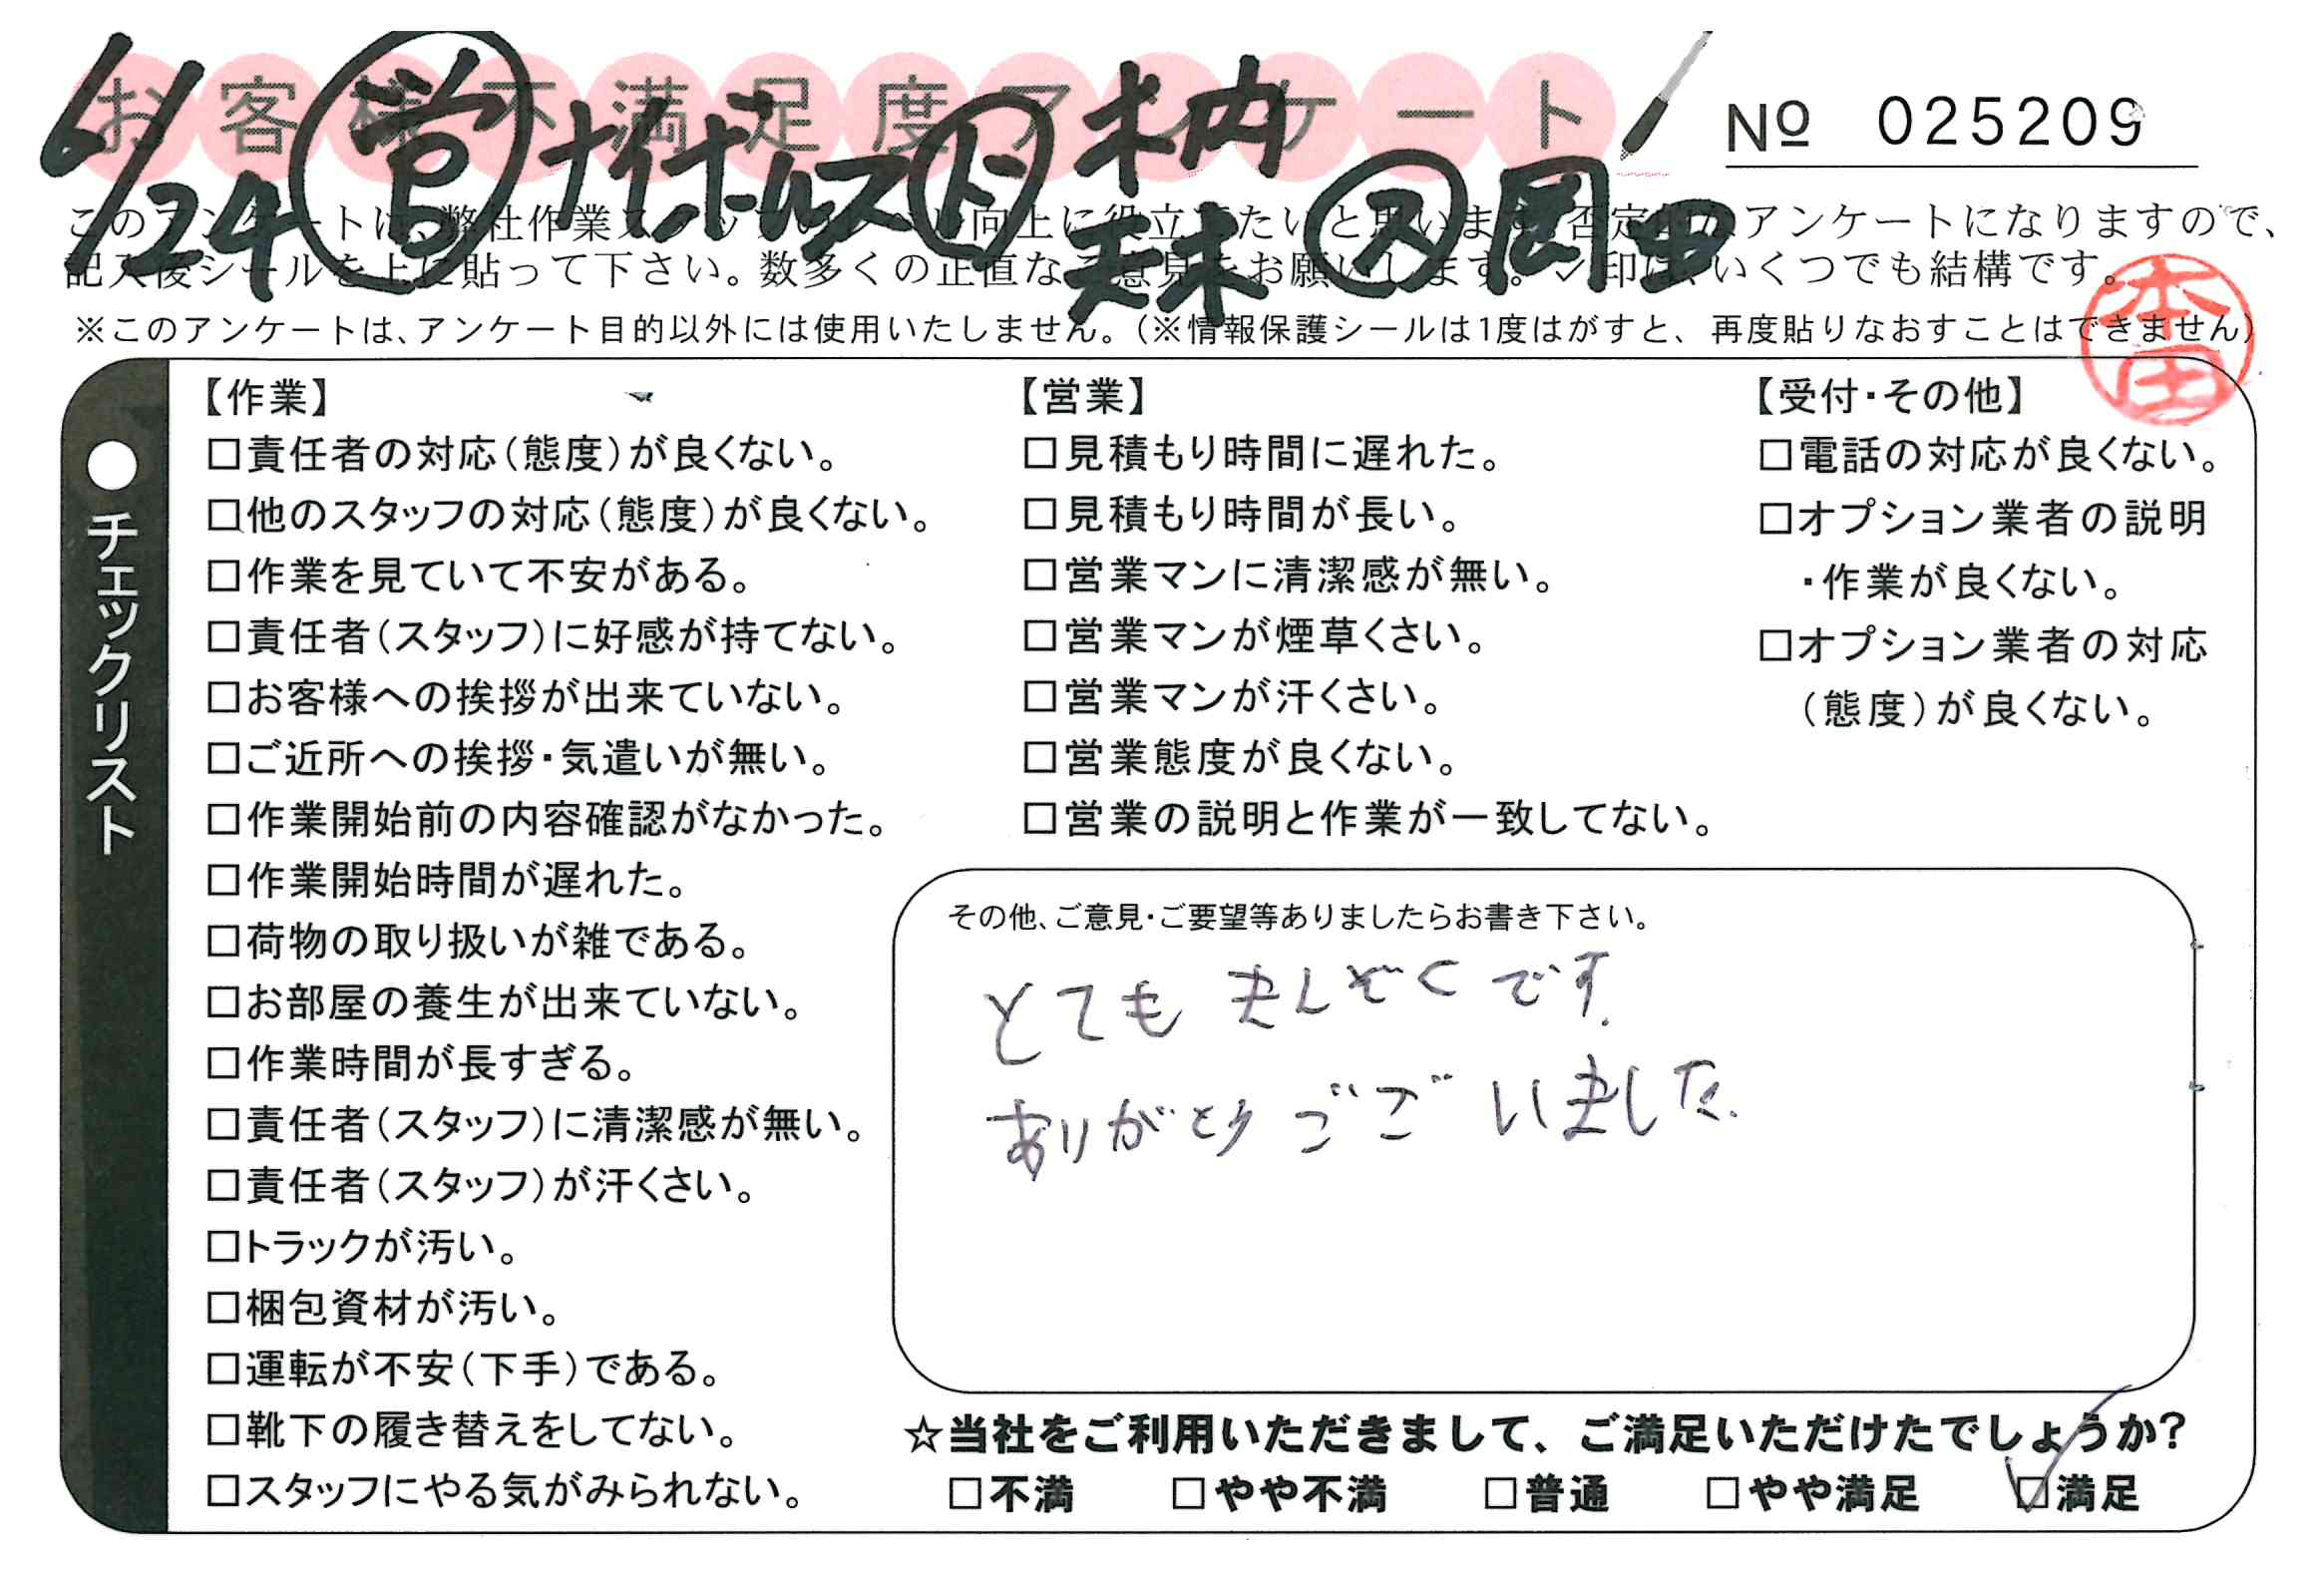 お客様不満足度アンケート
№ 025209
6/24 営 ナイトホールス ト 木内 天未 ス 岡田
このアンケートは、弊社作業スタッフのレベル向上に役立てたいと思います。否定的なアンケートになりますので、
記入後シールを上に貼って下さい。数多くの正直なご意見をお願いします。✓印は、いくつでも結構です。
※このアンケートは、アンケート目的以外には使用いたしません。(※情報保護シールは1度はがすと、再度貼りなおすことはできません)
本田
●チェックリスト
【作業】
□責任者の対応(態度)が良くない。
□他のスタッフの対応(態度)が良くない。
□作業を見ていて不安がある。
□責任者(スタッフ)に好感が持てない。
□お客様への挨拶が出来ていない。
□ご近所への挨拶・気遣いが無い。
□作業開始前の内容確認がなかった。
□作業開始時間が遅れた。
□荷物の取り扱いが雑である。
□お部屋の養生が出来ていない。
□作業時間が長すぎる。
□責任者(スタッフ)に清潔感が無い。
□責任者(スタッフ)が汗くさい。
□トラックが汚い。
□梱包資材が汚い。
□運転が不安(下手)である。
□靴下の履き替えをしてない。
□スタッフにやる気がみられない。
【営業】
□見積もり時間に遅れた。
□見積もり時間が長い。
□営業マンに清潔感が無い。
□営業マンが煙草くさい。
□営業マンが汗くさい。
□営業態度が良くない。
□営業の説明と作業が一致してない。
【受付・その他】
□電話の対応が良くない。
□オプション業者の説明
・作業が良くない。
□オプション業者の対応
(態度)が良くない。
その他、ご意見・ご要望等ありましたらお書き下さい。
とても まんぞくです.
ありがとうございました.
☆当社をご利用いただきまして、ご満足いただけたでしょうか?
□不満 □やや不満 □普通 □やや満足 ☑満足